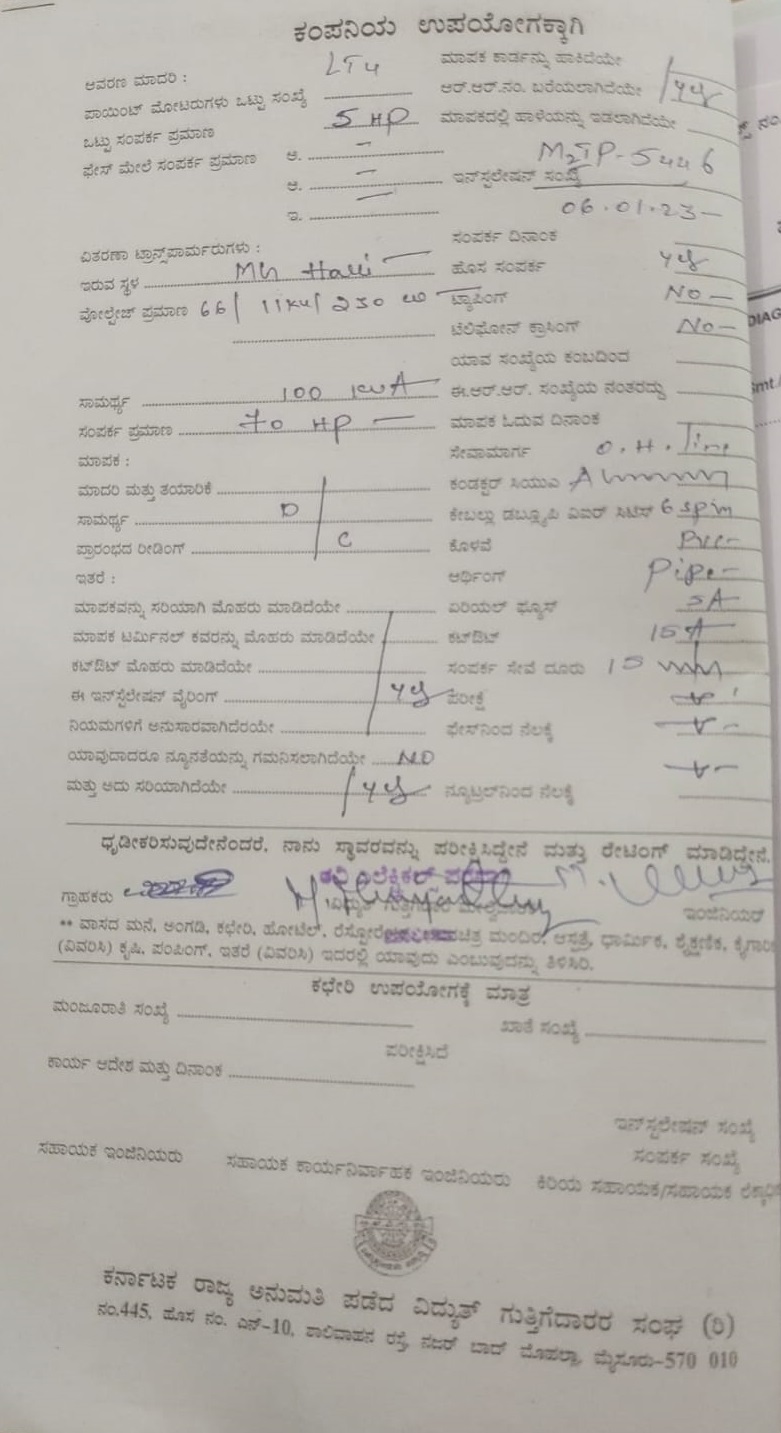 ಕಂಪನಿಯ ಉಪಯೋಗಕ್ಕಾಗಿ
ಆವರಣ ಮಾದರಿ : LT4 ಮಾಪಕ ಕಾರ್ಡನ್ನು ಹಾಕಿದೆಯೇ
ಪಾಯಿಂಟ್ ಮೋಟರುಗಳು ಒಟ್ಟು ಸಂಖ್ಯೆ ಆರ್.ಆರ್.ನಂ. ಬರೆಯಲಾಗಿದೆಯೇ yes
ಒಟ್ಟು ಸಂಪರ್ಕ ಪ್ರಮಾಣ 5 HP ಮಾಪಕದಲ್ಲಿ ಹಾಳೆಯನ್ನು ಇಡಲಾಗಿದೆಯೇ
ಫೇಸ್ ಮೇಲೆ ಸಂಪರ್ಕ ಪ್ರಮಾಣ ಅ. – M2TP-5446
ಆ. – ಇನ್‌ಸ್ಟಲೇಷನ್ ಸಂಖ್ಯೆ
ಇ. – 06.01.23-
ವಿತರಣಾ ಟ್ರಾನ್ಸ್‌ಫಾರ್ಮರುಗಳು : ಸಂಪರ್ಕ ದಿನಾಂಕ
ಇರುವ ಸ್ಥಳ Halli ಹೊಸ ಸಂಪರ್ಕ yes
ವೋಲ್ಟೇಜ್ ಪ್ರಮಾಣ 66/11KV/250 ಟ್ಯಾಪಿಂಗ್ No-
ಟೆಲಿಫೋನ್ ಕ್ರಾಸಿಂಗ್ No-
ಯಾವ ಸಂಖ್ಯೆಯ ಕಂಬದಿಂದ
ಸಾಮರ್ಥ್ಯ 100 KVA ಈ.ಆರ್.ಆರ್. ಸಂಖ್ಯೆಯ ನಂತರದ್ದು
ಸಂಪರ್ಕ ಪ್ರಮಾಣ 70 HP – ಮಾಪಕ ಓದುವ ದಿನಾಂಕ
ಮಾಪಕ : ಸೇವಾಮಾರ್ಗ O.H. Line
ಮಾದರಿ ಮತ್ತು ತಯಾರಿಕೆ ಕಂಡಕ್ಟರ್ ಸಿಯುಎ
ಸಾಮರ್ಥ್ಯ D ಕೇಬಲ್ಲು ಡಬ್ಲ್ಯೂಪಿ ಎಐಆರ್ ಸಿಟಿಸ್ 6
ಪ್ರಾರಂಭದ ರೀಡಿಂಗ್ C ಕೊಳವೆ PVC-
ಇತರೆ : ಅರ್ಥಿಂಗ್ Pipe-
ಮಾಪಕವನ್ನು ಸರಿಯಾಗಿ ಮೊಹರು ಮಾಡಿದೆಯೇ ಏರಿಯಲ್ ಫ್ಯೂಸ್ 5A
ಮಾಪಕ ಟರ್ಮಿನಲ್ ಕವರನ್ನು ಮೊಹರು ಮಾಡಿದೆಯೇ ಕಟ್‌ಔಟ್ 15A
ಕಟ್‌ಔಟ್ ಮೊಹರು ಮಾಡಿದೆಯೇ ಸಂಪರ್ಕ ಸೇವೆ ದೂರು 15
ಈ ಇನ್‌ಸ್ಟಲೇಷನ್ ವೈರಿಂಗ್ yes ಪರೀಕ್ಷೆ
ನಿಯಮಗಳಿಗೆ ಅನುಸಾರವಾಗಿದೆರಯೇ ಫೇಸ್‌ನಿಂದ ನೆಲಕ್ಕೆ
ಯಾವುದಾದರೂ ನ್ಯೂನತೆಯನ್ನು ಗಮನಿಸಲಾಗಿದೆಯೇ NO
ಮತ್ತು ಅದು ಸರಿಯಾಗಿದೆಯೇ yes ನ್ಯೂಟ್ರಲ್‌ನಿಂದ ನೆಲಕ್ಕೆ
ಧೃಡೀಕರಿಸುವುದೇನೆಂದರೆ, ನಾನು ಸ್ಥಾವರವನ್ನು ಪರೀಕ್ಷಿಸಿದ್ದೇನೆ ಮತ್ತು ರೇಟಿಂಗ್ ಮಾಡಿದ್ದೇನೆ.
ಗ್ರಾಹಕರು ಇಂಜಿನಿಯರ್
** ವಾಸದ ಮನೆ, ಅಂಗಡಿ, ಕಛೇರಿ, ಹೋಟೆಲ್, ಮಂದಿರ, ಆಸ್ಪತ್ರೆ, ಧಾರ್ಮಿಕ, ಶೈಕ್ಷಣಿಕ,
(ವಿವರಿಸಿ) ಕೃಷಿ, ಪಂಪಿಂಗ್, ಇತರೆ (ವಿವರಿಸಿ) ಇದರಲ್ಲಿ ಯಾವುದು ಎಂಬುವುದನ್ನು ತಿಳಿಸಿರಿ.
ಕಛೇರಿ ಉಪಯೋಗಕ್ಕೆ ಮಾತ್ರ
ಮಂಜೂರಾತಿ ಸಂಖ್ಯೆ ಖಾತೆ ಸಂಖ್ಯೆ
ಪರೀಕ್ಷಿಸಿದೆ
ಕಾರ್ಯ ಆದೇಶ ಮತ್ತು ದಿನಾಂಕ
ಇನ್‌ಸ್ಟಲೇಷನ್ ಸಂಖ್ಯೆ
ಸಂಪರ್ಕ ಸಂಖ್ಯೆ
ಸಹಾಯಕ ಇಂಜಿನಿಯರು ಸಹಾಯಕ ಕಾರ್ಯನಿರ್ವಾಹಕ ಇಂಜಿನಿಯರು ಕಿರಿಯ ಸಹಾಯಕ/ಸಹಾಯಕ
ಕರ್ನಾಟಕ ರಾಜ್ಯ ಅನುಮತಿ ಪಡೆದ ವಿದ್ಯುತ್ ಗುತ್ತಿಗೆದಾರರ ಸಂಘ (ರಿ)
ನಂ.445, ಹೊಸ ನಂ. ಎನ್-10, ಶಾಲಿವಾಹನ ರಸ್ತೆ, ನಜರ್ ಬಾದ್ ಮೊಹಲ್ಲಾ, ಮೈಸೂರು-570 010